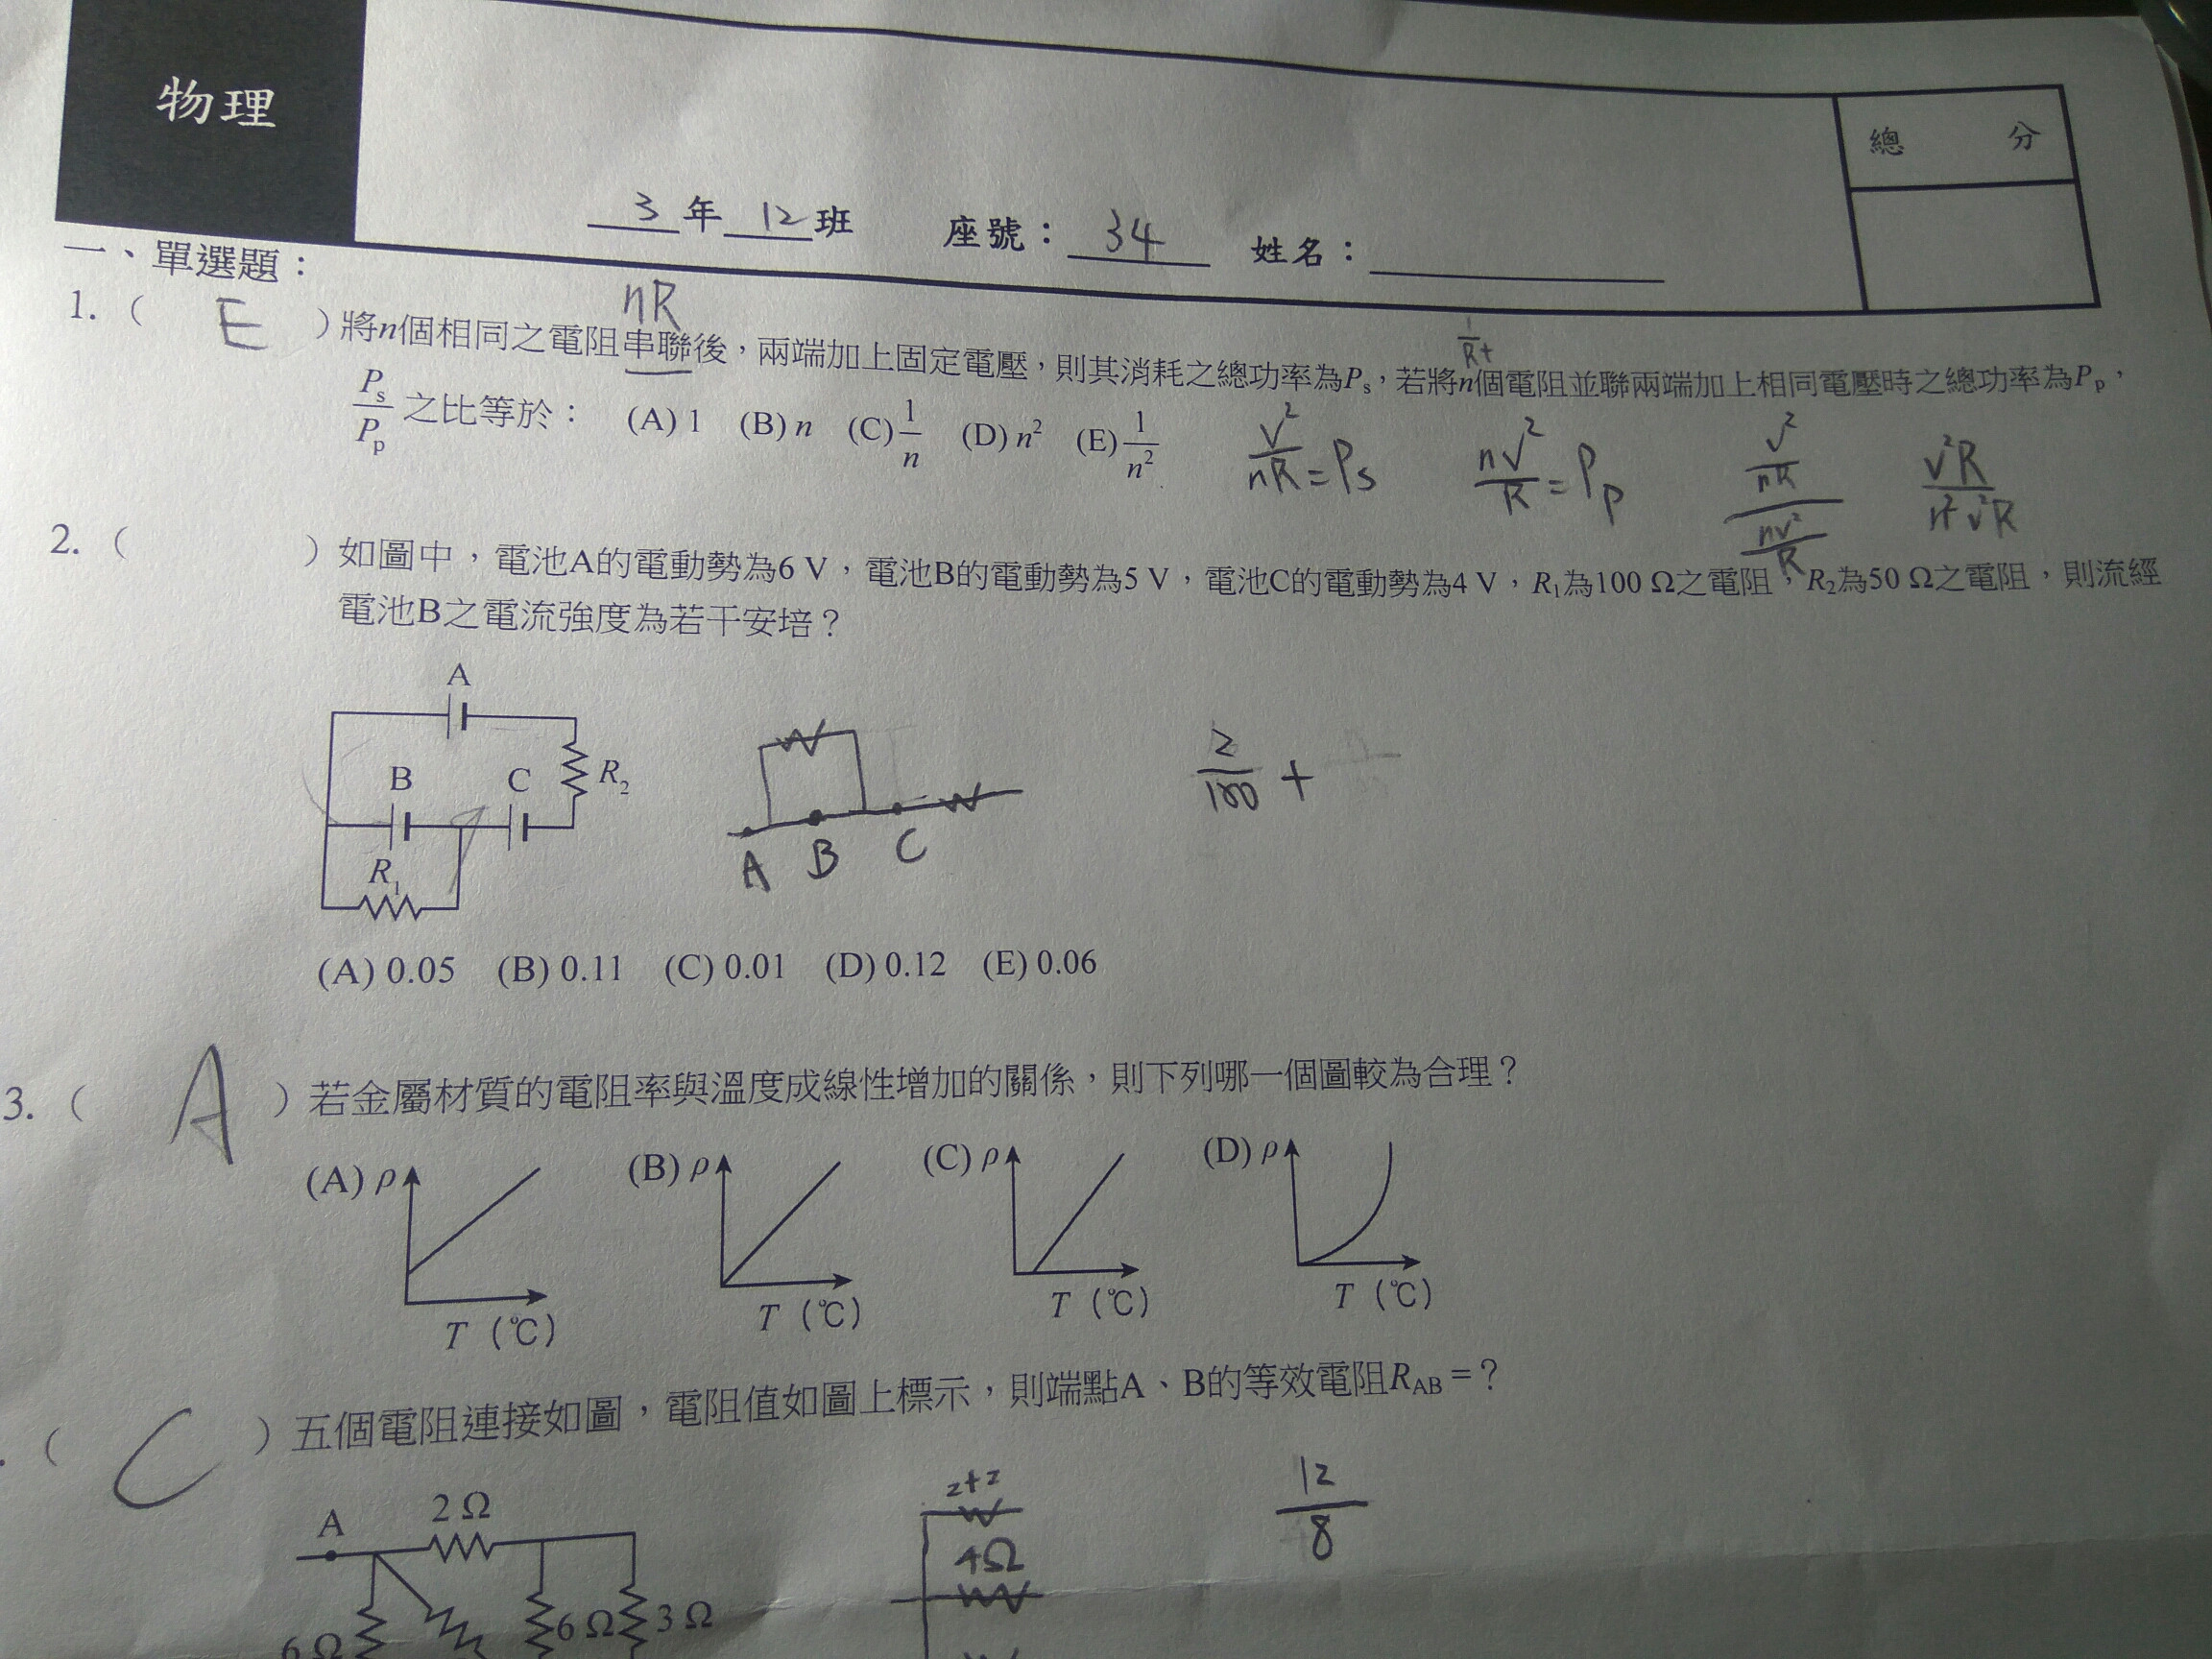 物理
總 分
3 年 12 班 座號：34 姓名：
一、單選題：
nR
1.（ E ）將n個相同之電阻串聯後，兩端加上固定電壓，則其消耗之總功率為Ps，若將n個電阻並聯兩端加上相同電壓時之總功率為Pp，
Ps/Pp 之比等於： (A) 1 (B) n (C) 1/n (D) n² (E) 1/n²
V²/nR = Ps nV²/R = Pp
2.（ ）如圖中，電池A的電動勢為6 V，電池B的電動勢為5 V，電池C的電動勢為4 V，R₁為100 Ω之電阻，R₂為50 Ω之電阻，則流經
電池B之電流強度為若干安培？
A
B C R₂
R₁
A B C
2/100 +
(A) 0.05 (B) 0.11 (C) 0.01 (D) 0.12 (E) 0.06
3.（ A ）若金屬材質的電阻率與溫度成線性增加的關係，則下列哪一個圖較為合理？
(A) ρ (B) ρ (C) ρ (D) ρ
T（℃） T（℃） T（℃） T（℃）
.（ C ）五個電阻連接如圖，電阻值如圖上標示，則端點A、B的等效電阻RAB =？
A 2 Ω
6 Ω 6 Ω 3 Ω
2+2
4Ω
12/8